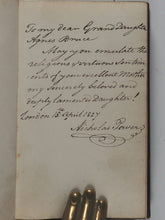 To my dear Grand Daughter
Agnes Bruce
May you emulate the
religious & virtuous Sentim
ents of your excellent Mother
my sincerely beloved and
deeply lamented Daughter!
London 18 April 1827
Nicholas Power